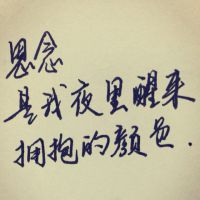 思念
是我夜里醒来
拥抱的颜色.